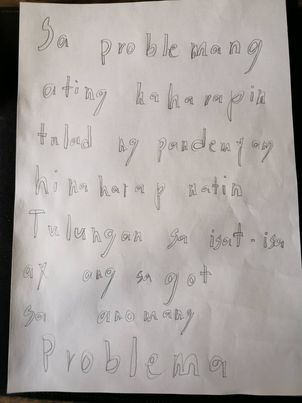 Sa problemang
ating haharapin
tulad ng pandemyang
hinaharap natin
Tulungan sa isat-isa
ay ang sagot
sa anomang
Problema